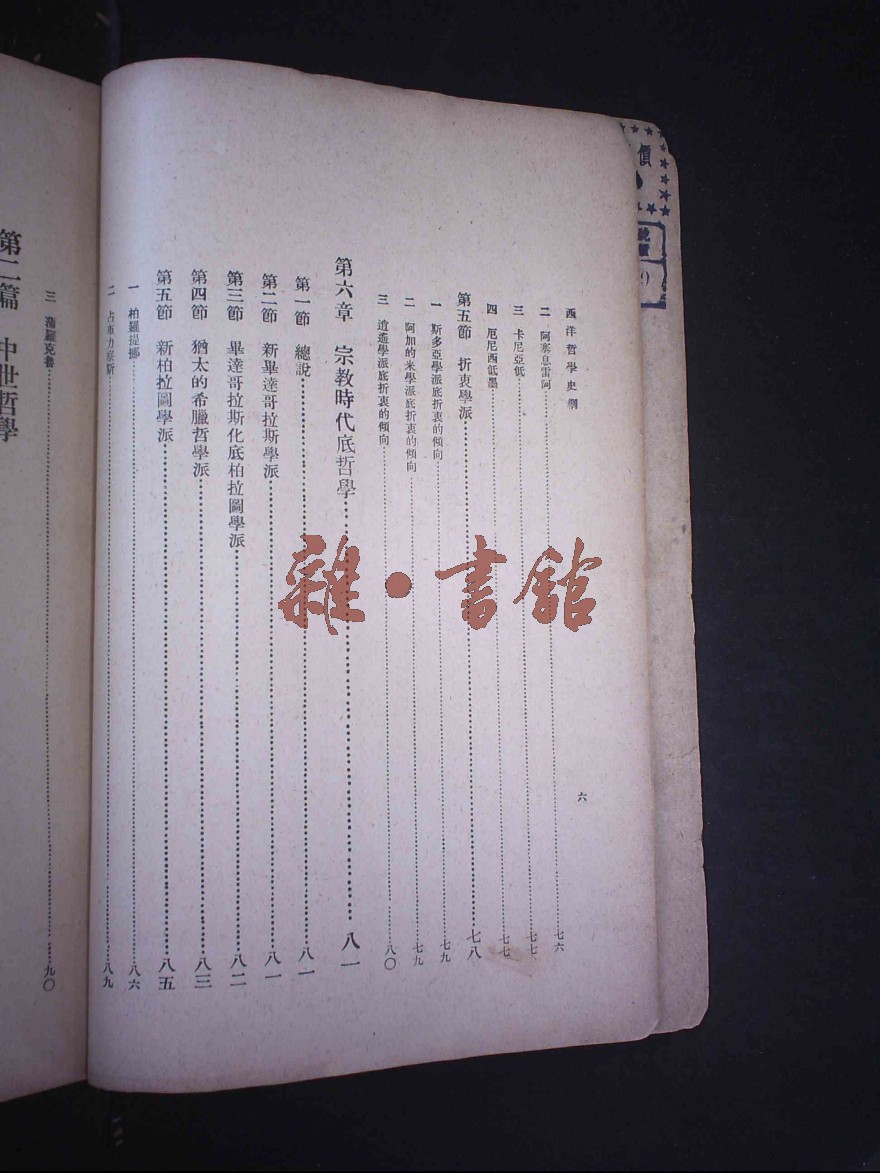 西洋哲學史綱
六
二 阿塞息雷阿……七六
三 卡尼亞低……七七
四 厄尼西低墨……七七
第五節 折衷學派……七八
一 斯多亞學派底折衷的傾向……七九
二 阿加的米學派底折衷的傾向……七九
三 逍遙學派底折衷的傾向……八〇
第六章 宗教時代底哲學……八一
第一節 總說……八一
第二節 新畢達哥拉斯學派……八一
第三節 畢達哥拉斯化底柏拉圖學派……八二
第四節 猶太的希臘哲學派……八三
第五節 新柏拉圖學派……八五
一 柏羅提挪……八六
二 占布力奈斯……八九
三 蒲羅克魯……九〇
第二篇 中世哲學
雜·書館
價